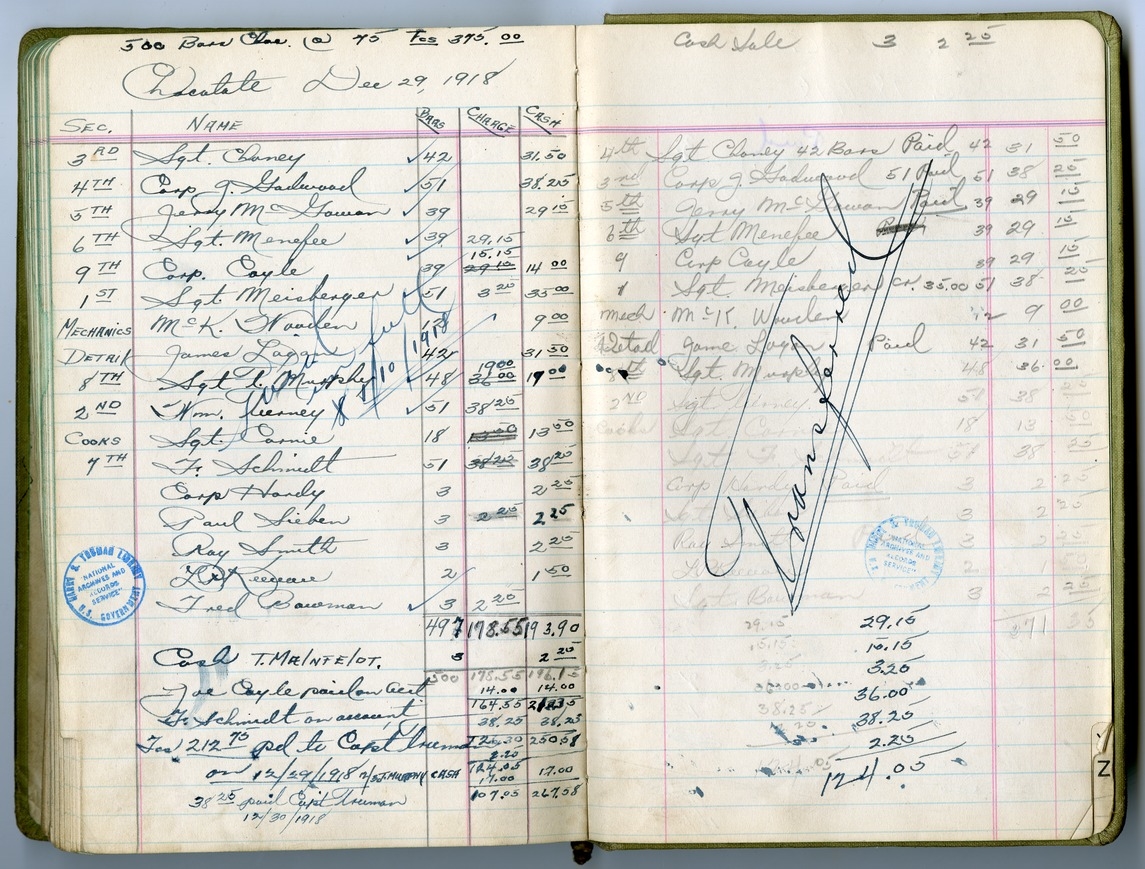 500 Bars Choc. @ 75 Fcs 375.00
Chocolate Dec 29, 1918
SEC. NAME BARS CHARGE CASH
3RD Sgt. Chaney ✓42 31.50
4TH Corp J. Gadwood ✓51 38.25
5TH Jerry McGowan ✓39 29 15
6TH Sgt. Menefee ✓39 29.15
15.15
9TH Corp. Coyle 39 29 15 14 00
1ST Sgt. Meisberger ✓51 3 20 35 00
MECHANICS McK. Wooden 9 00
DETAIL James Logan 42 31 50
19 00
8TH Sgt. Murphy ✓48 36 00 17 00
2ND Wm. Tierney ✓51 38 25
COOKS Sgt. 18 13 50
7TH F. Schmidt 51 38 25 38 25
Corp Hardy 3 2 25
Paul Sieben 3 2 25 2 25
Ray Smith 3 2 25
Keenan 2 1 50
Fred Bowman ✓3 2 20
497 178.55 193.90
Cash 3 2 25
500 178.55 196.15
Joe Coyle paid on acct 14.00 14.00
164.55
F. Schmidt on account 38.25 38.25
Fcs 212 75 pd to Capt Truman 126.30 250.58
2.20
on 12/29/1918 MURPHY CASH 124.05
17.00 17.00
107.05 267.58
38 25 paid Capt Truman
12/30/1918
full
8/10/1918
HARRY S. TRUMAN LIBRARY
NATIONAL ARCHIVES AND RECORDS SERVICE
U.S. GOVERNMENT
Cash Sale 3 2 25
4th Sgt Chaney 42 Bars Paid 42 31 50
3rd Corp J. Gadwood 51 Paid 51 38 25
5th Jerry McGowan Paid 39 29 15
6th Sgt Menefee 39 29 15
9 Corp Coyle 39 29 15
1 Sgt. Meisberger Cr. 35.00 51 38 25
mech McK. Wooden 12 9 00
Detail Logan Paid 42 31 50
8th Sgt. Murphy 48 36 00
2ND Sgt. 51 38
Cooks Sgt 18 13
51 38 25
Corp Hardy Paid 3 2 25
3 2 25
Ray Smith 3 2
2 1
Sgt. Bowman 3 2 25
Transferred
HARRY S. TRUMAN LIBRARY
NATIONAL ARCHIVES AND RECORDS SERVICE
U.S. GOVERNMENT
29.15 29.15
15.15 15.15
3.20 3.20
36.00
38.25 38.25
2.25
124.05
Z